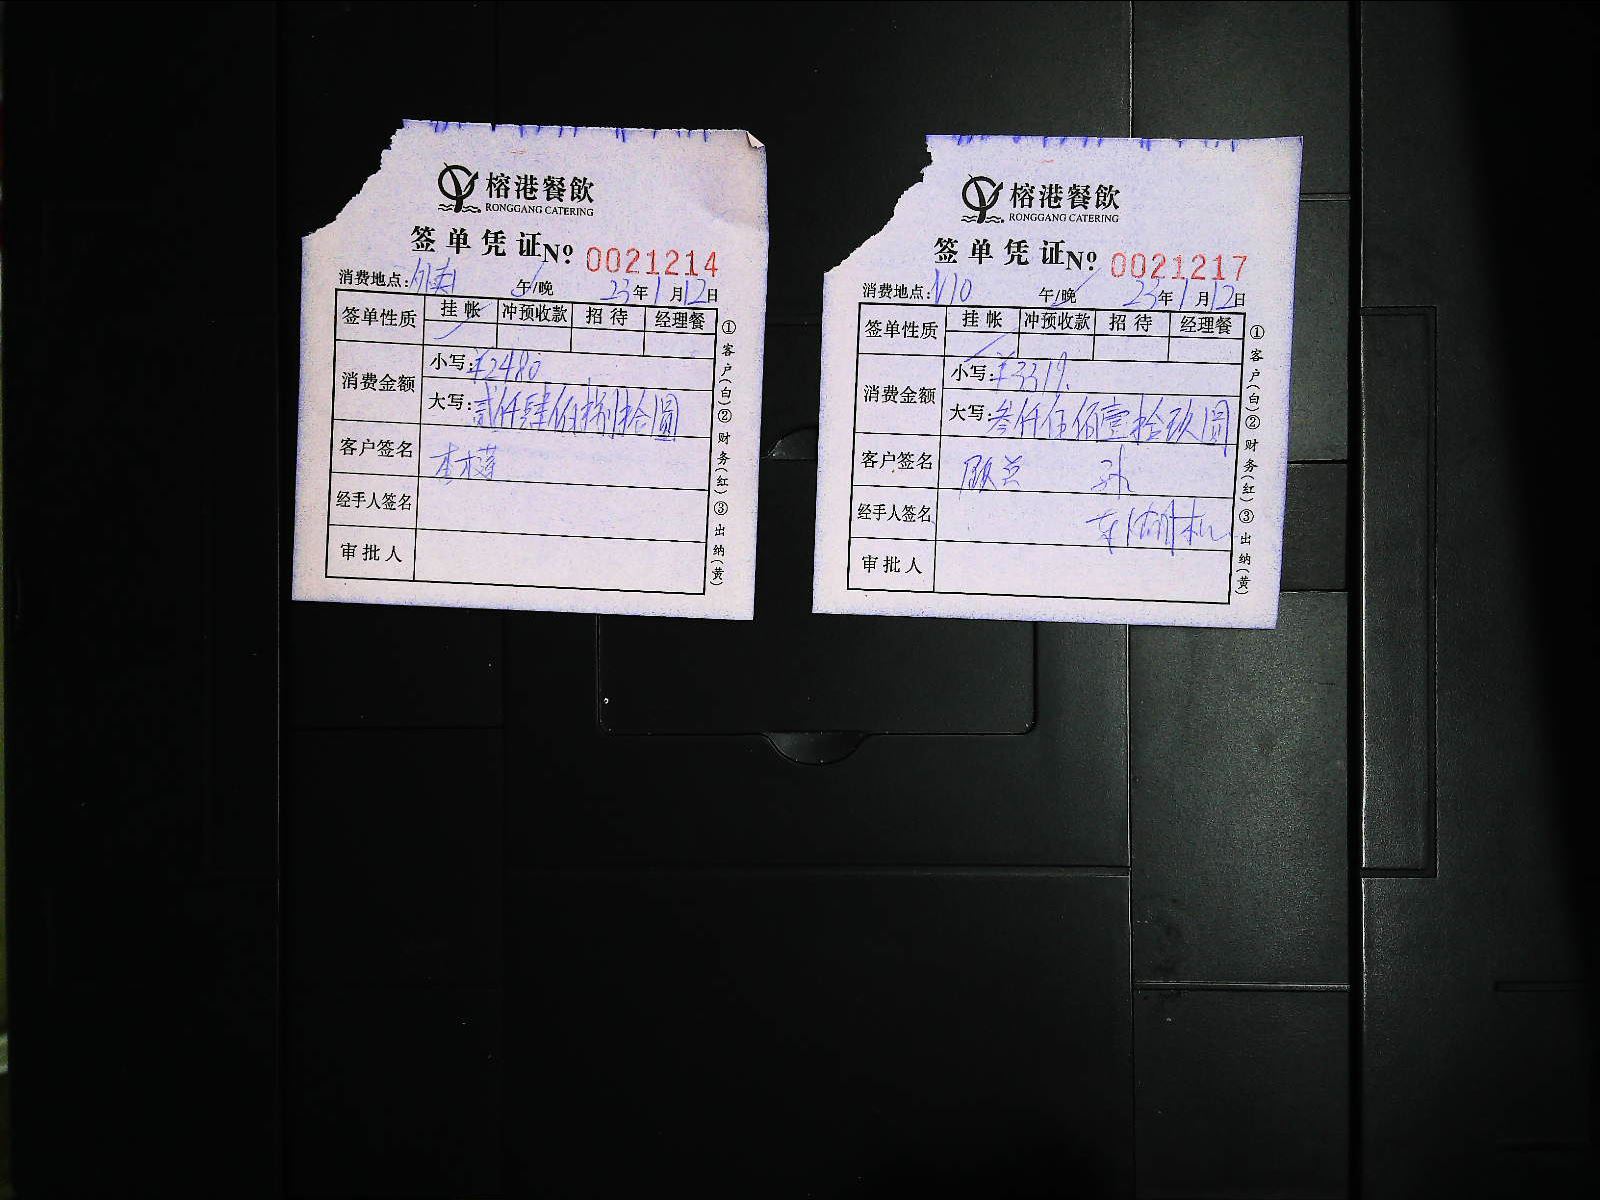 榕港餐飲
RONGGANG CATERING
签单凭证No 0021214
消费地点: 外卖 午/晚 23年1月12日
签单性质 挂帐 冲预收款 招待 经理餐
消费金额 小写:¥2480
大写:贰仟肆佰捌拾圆
客户签名
经手人签名
审批人
①客户(白)②财务(红)③出纳(黄)
榕港餐飲
RONGGANG CATERING
签单凭证No 0021217
消费地点: V10 午/晚 23年1月12日
签单性质 挂帐 冲预收款 招待 经理餐
消费金额 小写:¥3319.
大写:叁仟伍佰壹拾玖圆
客户签名 顾总 孙
经手人签名
审批人
①客户(白)②财务(红)③出纳(黄)